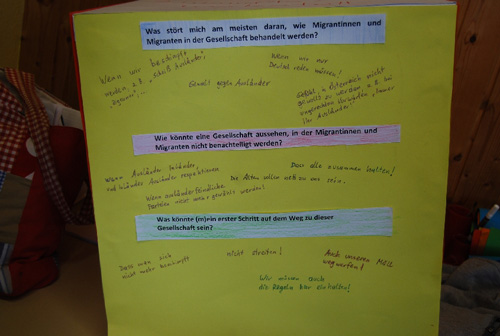 Was stört mich am meisten daran, wie Migrantinnen und
Migranten in der Gesellschaft behandelt werden?
Wenn wir beschimpft
werden, z.B. „Scheiß Ausländer",
Wenn wir nur
Deutsch reden müssen!
Gewalt gegen Ausländer
Gefühl, in Österreich nicht
gewollt zu werden z.B. bei
Ihr Ausländer"
Wie könnte eine Gesellschaft aussehen, in der Migrantinnen und
Migranten nicht benachteiligt werden?
Wenn Ausländer Inländer,
und Inländer Ausländer respektieren
Dass alle zusammen halten!
Die Alten sollen nett zu uns sein.
Wenn ausländerfeindliche
Parteien nicht mehr gewählt werden!
Was könnte (m)ein erster Schritt auf dem Weg zu dieser
Gesellschaft sein?
Dass man sich
nicht mehr beschimpft
nicht streiten!
Auch unseren Müll
wegwerfen!
Wir müssen auch
die Regeln hier einhalten!